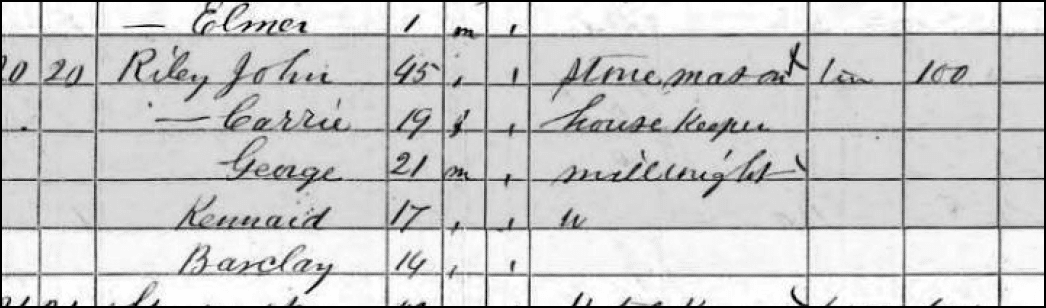 — Elmer 1 m ,
20 20 Riley John 45 , , stone mason 100
. — Carrie 19 f , house Keeper
George 21 m , millwright
Kennaid 17 , , "
Barclay 14 , ,